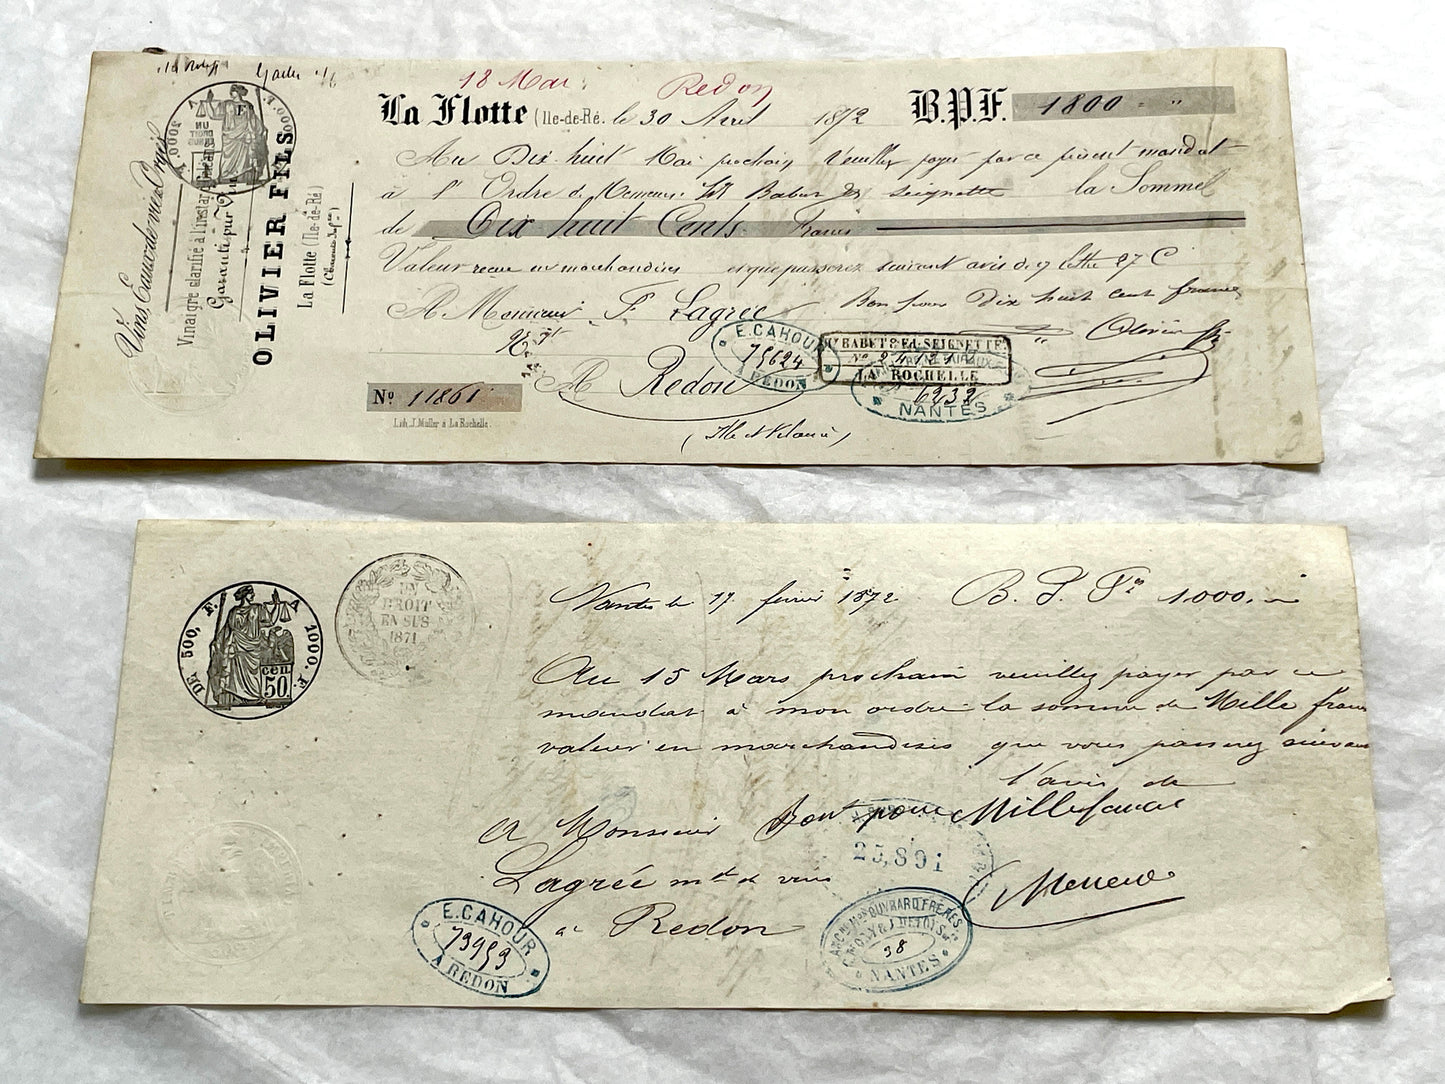 18 Mai Redon
La Flotte (Ile-de-Ré. le 30 Avril 1872 B.P.F. 1800 = "
Au Dix huit Mai prochain Veuillez payer par ce présent mandat
à l'Ordre de Messieurs Babut Seignette la Somme
de Dix huit Cents Francs
Valeur reçue en marchandises et que passerez suivant avis de
A Monsieur F. Lagrée Bon pour Dix huit cent francs
Olivier
A Redon
(Ile et Vilaine)
Nº 11861
Lith. J. Muller à La Rochelle.
Vins, Eaux-de-vie
Vinaigre clarifié à l'instar
Garanti pur Vin
OLIVIER FILS
La Flotte (Ile-de-Ré)
(Charente Infre)
UN
DROIT
EN SUS
E. CAHOUR
75624
A REDON
BABUT & Ed. SEIGNETTE
LA ROCHELLE
6232
NANTES
DE 500, F. A 1000. F.
cen
50.
UN
DROIT
EN SUS
1871
Nantes le 17 février 1872 B. P. F. 1000.
Au 15 Mars prochain veuillez payer par ce
mandat à mon ordre la somme de Mille francs
valeur en marchandises que vous passerez suivant
l'avis de
A Monsieur Bon pour Mille francs
Lagrée md de vins
à Redon
25,891
E. CAHOUR
73953
A REDON
OUVRARD FRÈRES.
38
NANTES